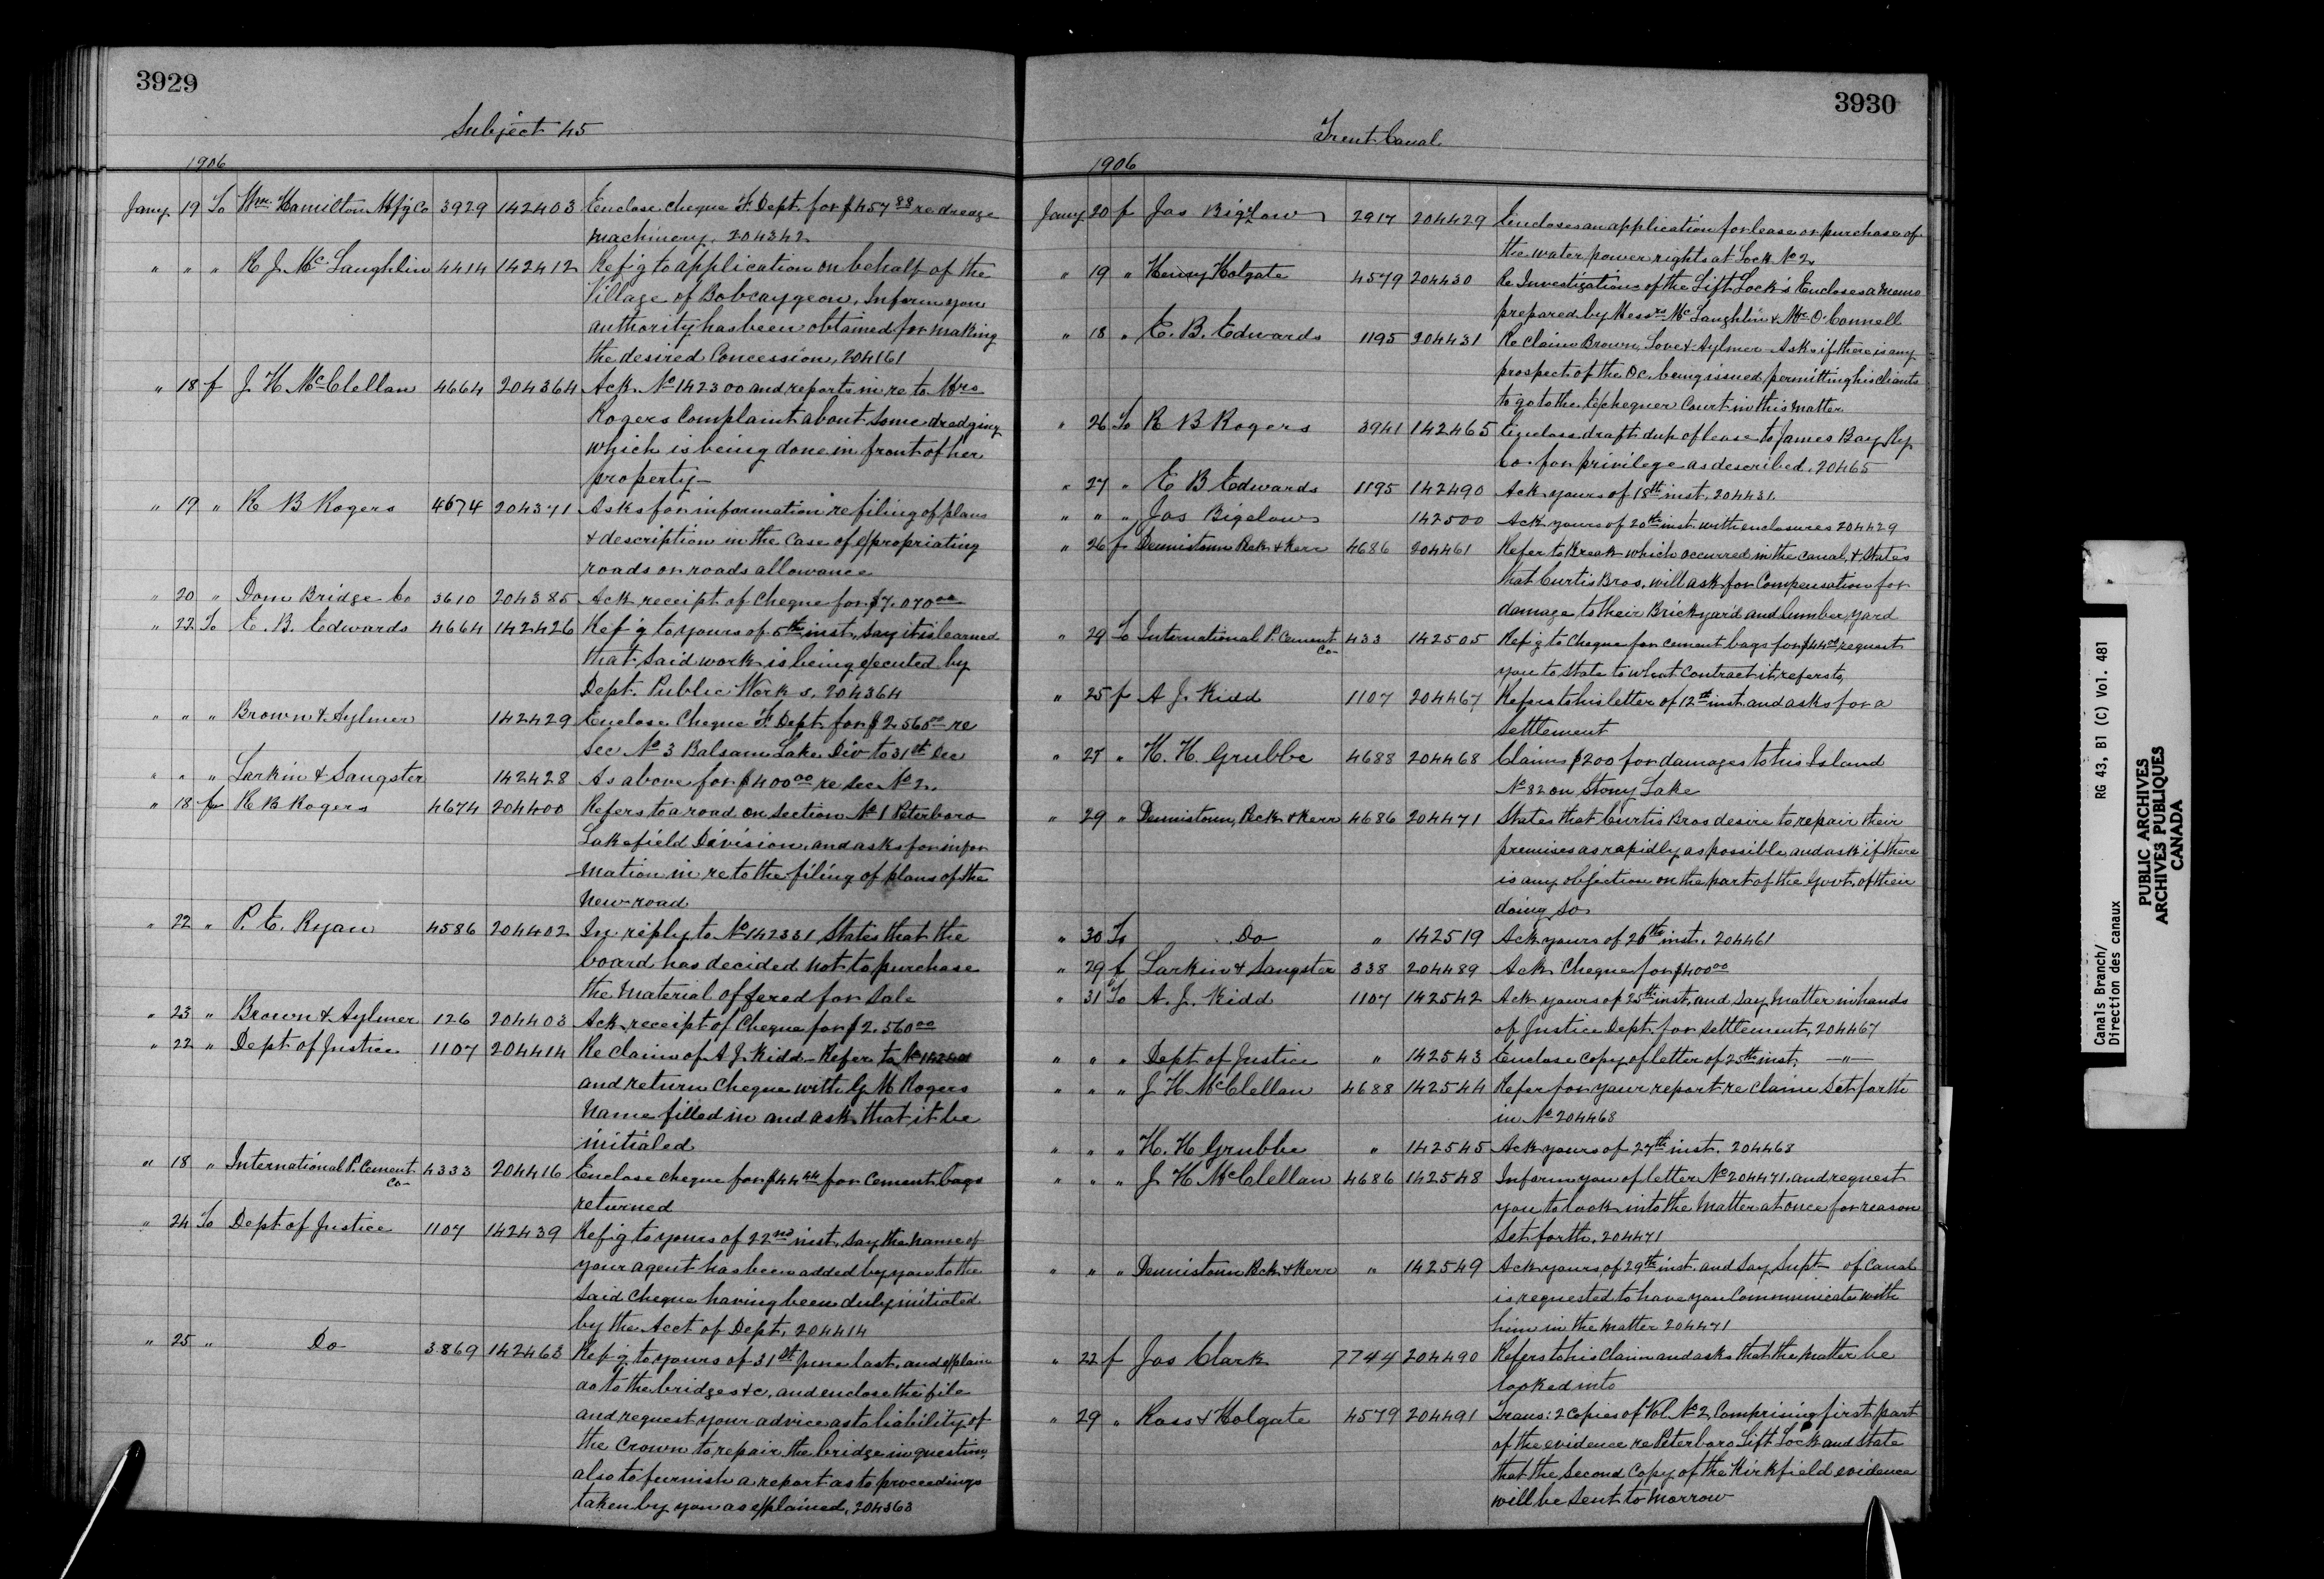 3929
Subject 45
1906
Jany 19 To Wm. Hamilton Mfg Co 3929 142403 Enclose cheque F. Dept. for $457 88 re dredge
machinery. 204342
" " " R J. McLaughlin 4414 142412 Ref'g to application on behalf of the
Village of Bobcaygeon. Inform you
authority has been obtained for making
the desired Concession. 204161
" 18 f J. H McClellan 4664 204364 Ack. No 142300 and reports in re to Mrs
Rogers Complaint about some dredging
which is being done in front of her
property
" 19 " R B Rogers 4674 204371 Asks for information re filing of plans
& description in the case of expropriating
roads or roads allowance
" 20 " Dom Bridge Co 3610 204385 Ack receipt of Cheque for $7.070 00
" 22 To E. B. Edwards 4664 142426 Ref'g to yours of 5th inst, say it is learned
that said work is being executed by
Dept. Public Works. 204364
" " " Brown & Aylmer 142429 Enclose Cheque F. Dept. for $2.560 00 re
Sec No 3 Balsam Lake Div to 31st Dec
" " " Larkin & Sangster 142428 As above for $400 00 re Sec No 2.
" 18 f R B Rogers 4674 204400 Refers to a road on Section No 1 Peterboro
Lakefield Division, and asks for infor
mation in re to the filing of plans of the
New road
" 22 " P. E. Ryan 4586 204402 In reply to No 142331 States that the
board has decided not to purchase
the material offered for sale
" 23 " Brown & Aylmer 126 204403 Ack receipt of Cheque for $2.560 00
" 22 " Dept of Justice 1107 204414 Re claim of A J. Kidd - Refer to No
and return Cheque with G M Rogers
Name filled in and ask that it be
initialed
" 18 " International P. Cement Co 4333 204416 Enclose cheque for $44 44 for Cement bags
returned
" 24 To Dept of Justice 1107 142439 Ref'g to yours of 22nd inst, say the name of
your agent has been added by you to the
said Cheque having been duly initialed
by the Acct of Dept. 204414
" 25 " Do 3869 142463 Ref'g to yours of 31st June last, and explain
as to the bridges &c, and enclose the file
and request your advice as to liability of
the Crown to repair the bridge in question,
also to furnish a report as to proceedings
taken by you as explained, 204363
3930
Trent Canal
1906
Jany 20 f Jas Bigelow 2917 204429 Encloses an application for lease or purchase of
the water power rights at Lock No 2.
" 19 " Henry Holgate 4579 204430 Re Investigation of the Lift Lock's Encloses a memo
prepared by Messrs McLaughlin & Mr. O'Connell
" 18 " E. B. Edwards 1195 204431 Re Claim Brown, Love & Aylmer Asks if there is any
prospect of the O.C. being issued, permitting his clients
to go to the Exchequer Court in this matter
" 26 To R B Rogers 3941 142465 Enclose draft dup of lease to James Bay Ry
Co. for privilege as described. 20465
" 27 " E B Edwards 1195 142490 Ack yours of 18th inst. 204431.
" " " Jas Bigelow 142500 Ack yours of 20th inst with enclosures 204429
" 26 f Dennistoun Peck & Kerr 4686 204461 Refer to Break which occurred in the canal, & States
that Curtis Bros. will ask for Compensation for
damage to their Brickyard and lumber yard
" 29 To International P. Cement Co 433 142505 Ref'g to Cheque for cement bags for $44 44, request
you to State to what Contract it refers to,
" 25 f A J. Kidd 1107 204467 Refers to his letter of 12th inst and asks for a
Settlement
" 27 " H. H. Grubbe 4688 204468 Claims $200 for damages to his Island
No 82 on Stony Lake
" 29 " Dennistoun, Peck & Kerr 4686 204471 States that Curtis Bros desire to repair their
premises as rapidly as possible, and ask if there
is any objection on the part of the Govt. of their
doing so
" 30 To Do " 142519 Ack yours of 26th inst. 204461
" 29 f Larkin & Sangster 338 204489 Ack Cheque for $400 00
" 31 To A. J. Kidd 1107 142542 Ack yours of 25th inst, and say matter in hands
of Justice Dept. for settlement, 204467
" " " Dept of Justice " 142543 Enclose copy of letter of 25th inst. — " —
" " " J H McClellan 4688 142544 Refer for your report re claim set forth
in No 204468
" " " H. H Grubbe " 142545 Ack yours of 27th inst. 204468
" " " J H McClellan 4686 142548 Inform you of letter No 204471, and request
you to look into the matter at once for reason
set forth. 204471
" " " Dennistoun Peck & Kerr " 142549 Ack yours of 29th inst. and say Supt of Canal
is requested to have you Communicate with
him in the matter 204471
" 22 f Jas Clark 7744 204490 Refers to his Claim and asks that the matter be
looked into
" 29 " Ross & Holgate 4579 204491 Trans: 2 Copies of Vol. No 2, Comprising first part
of the evidence re Peterboro Lift Lock and state
that the Second Copy of the Kirkfield evidence
will be sent tomorrow
Canals Branch/ RG 43, B1 (C) Vol. 481
Direction des canaux
PUBLIC ARCHIVES
ARCHIVES PUBLIQUES
CANADA